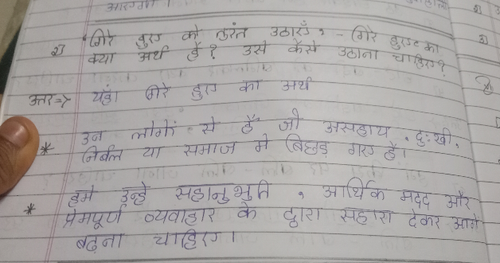 गिरे हुए को तुरंत उठाएँ - गिरे हुए का
क्या अर्थ है? उसे कैसे उठाना चाहिए?
उत्तर=> यहां गिरे हुए का अर्थ
* उन लोगों से है जो असहाय, दुःखी,
निर्बल या समाज मे बिछड़ गए है।
* हमे उन्हे सहानुभुति, आर्थिक मदद और
प्रेमपूर्ण व्यवाहार के द्वारा सहारा देकर आगे
बढ़ना चाहिए।